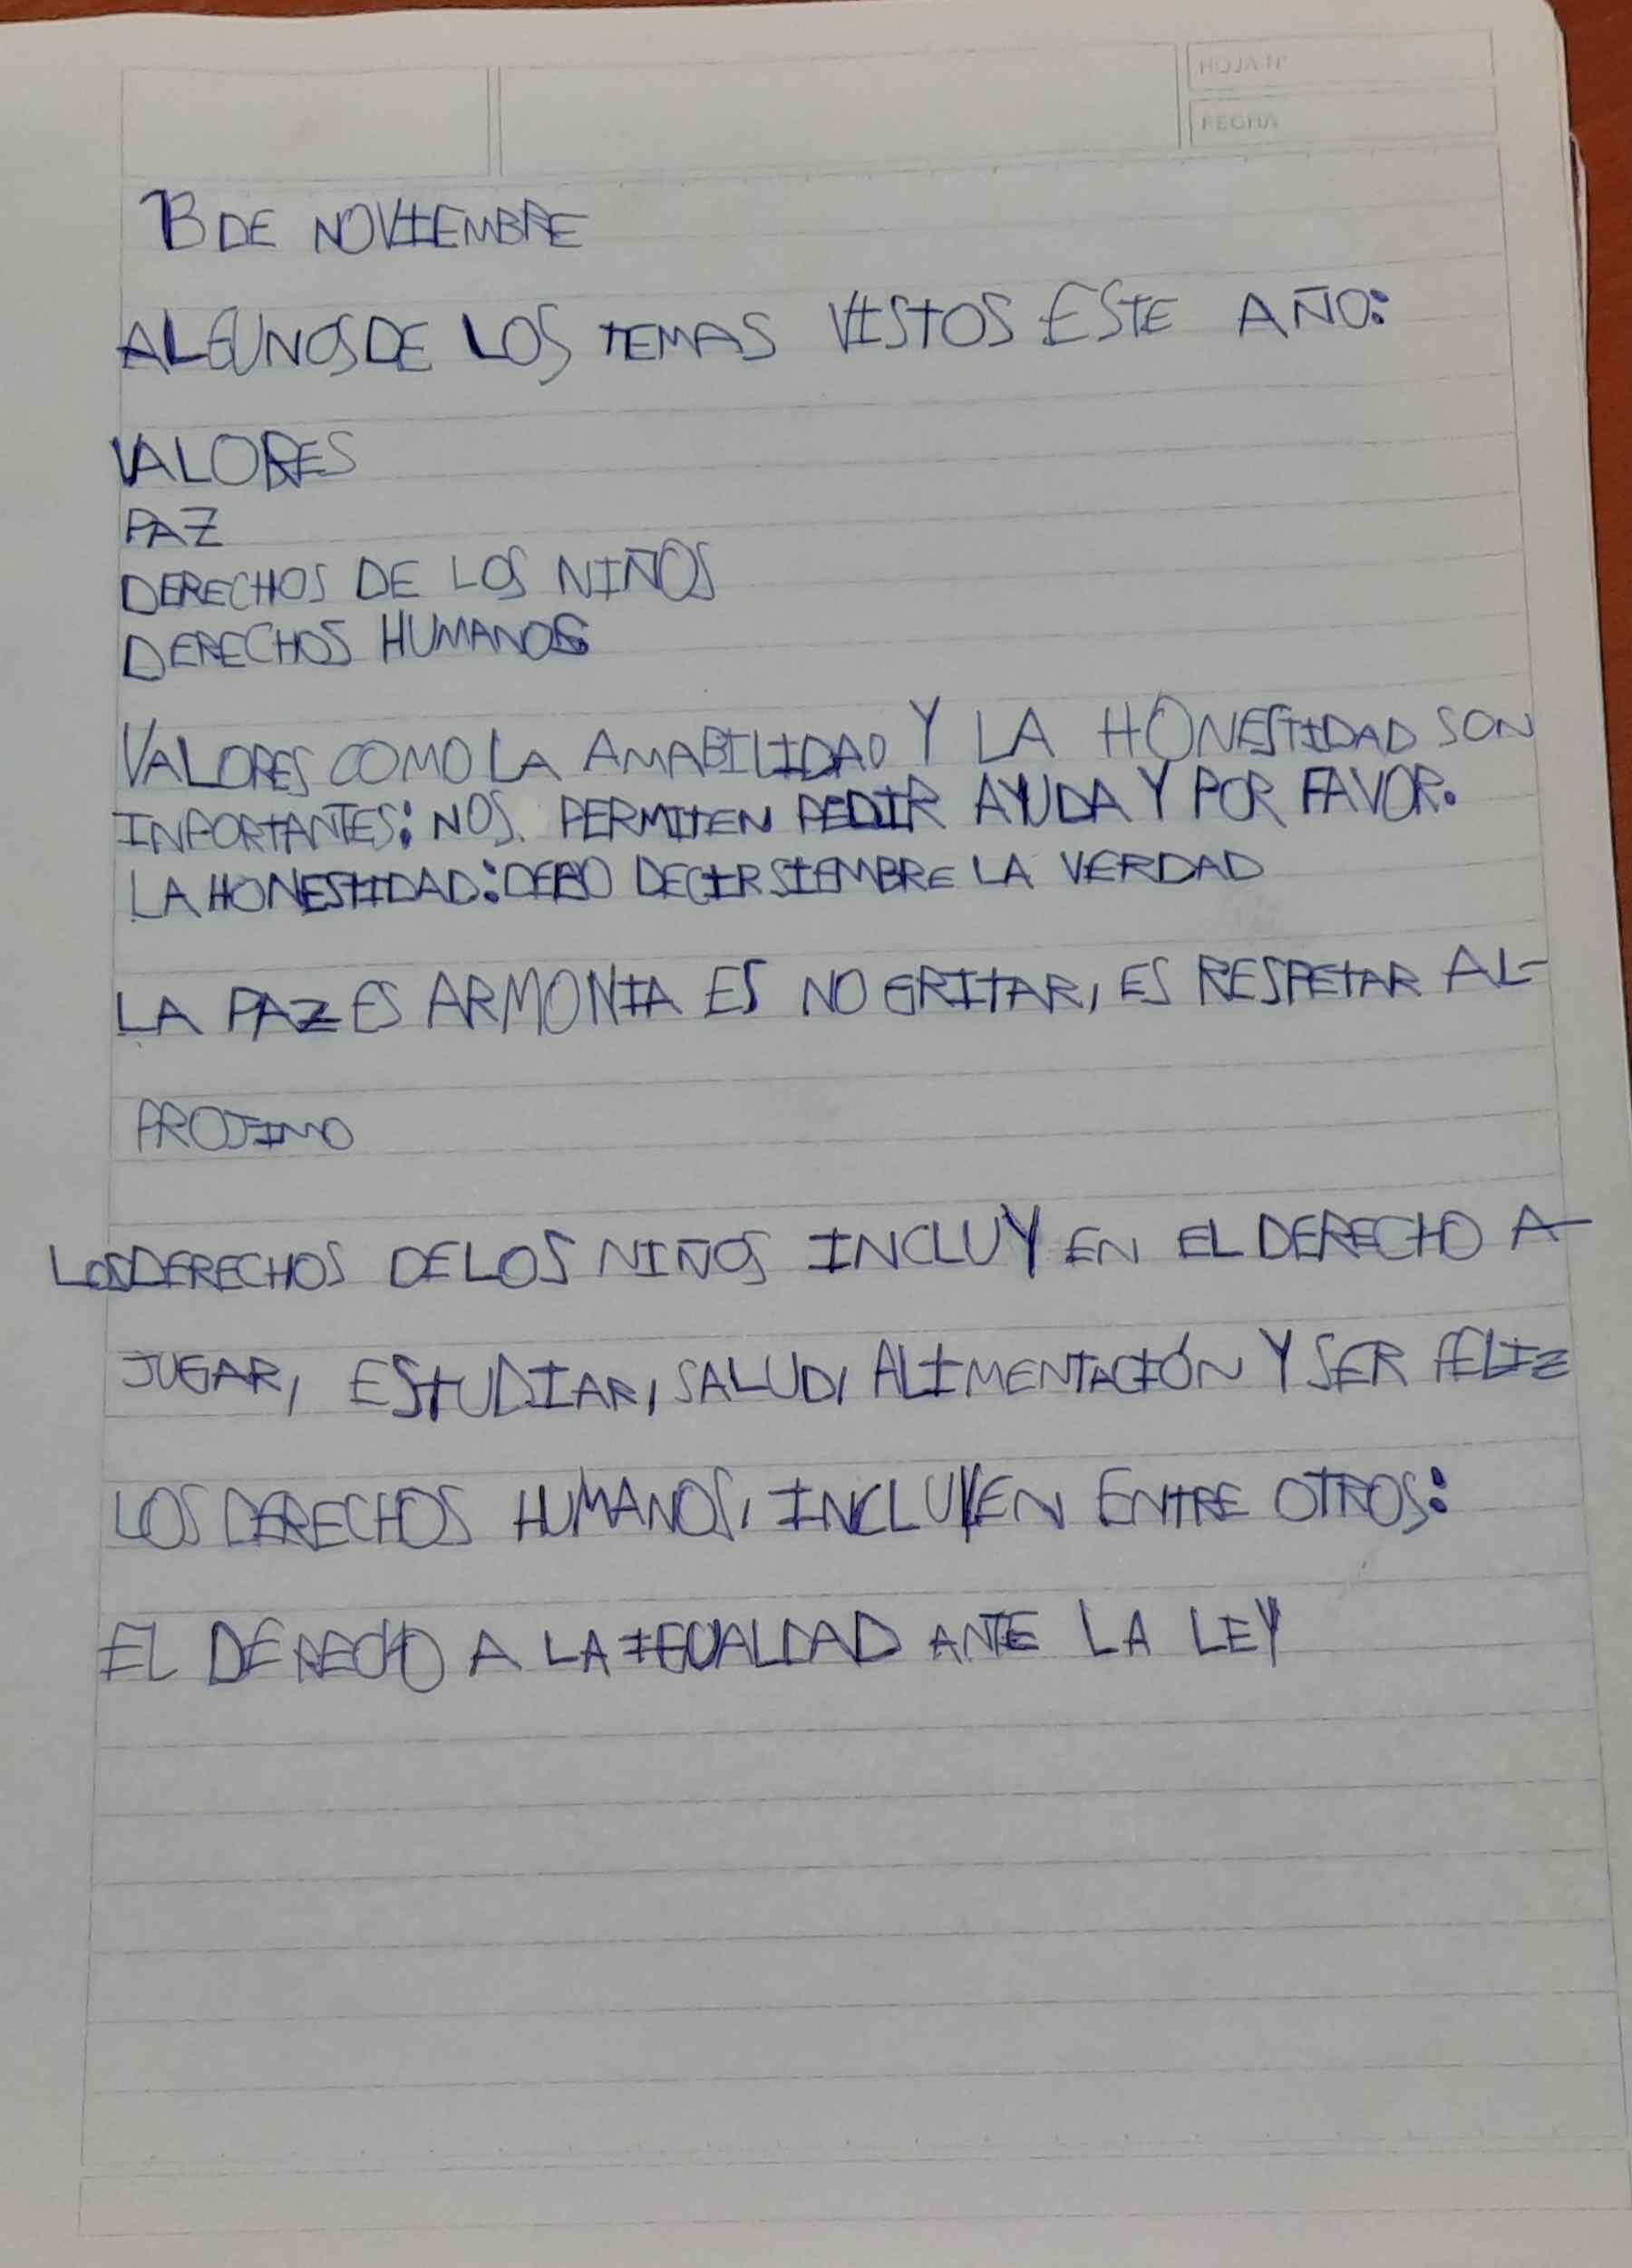 HOJA Nº
FECHA
13 DE NOVIEMBRE
ALGUNOS DE LOS TEMAS VISTOS ESTE AÑO:
VALORES
PAZ
DERECHOS DE LOS NIÑOS
DERECHOS HUMANOS
VALORES COMO LA AMABILIDAD Y LA HONESTIDAD SON
INPORTANTES: NOS PERMITEN PEDIR AYUDA Y POR FAVOR.
LA HONESTIDAD: DEBO DECIR SIEMBRE LA VERDAD
LA PAZ ES ARMONIA ES NO GRITAR, ES RESPETAR AL-
PROJIMO
LOS DERECHOS DE LOS NIÑOS INCLUYEN EL DERECHO A-
JUGAR, ESTUDIAR, SALUD, ALIMENTACIÓN Y SER FELIZ
LOS DERECHOS HUMANOS, INCLUYEN ENTRE OTROS:
EL DERECHO A LA IGUALDAD ANTE LA LEY